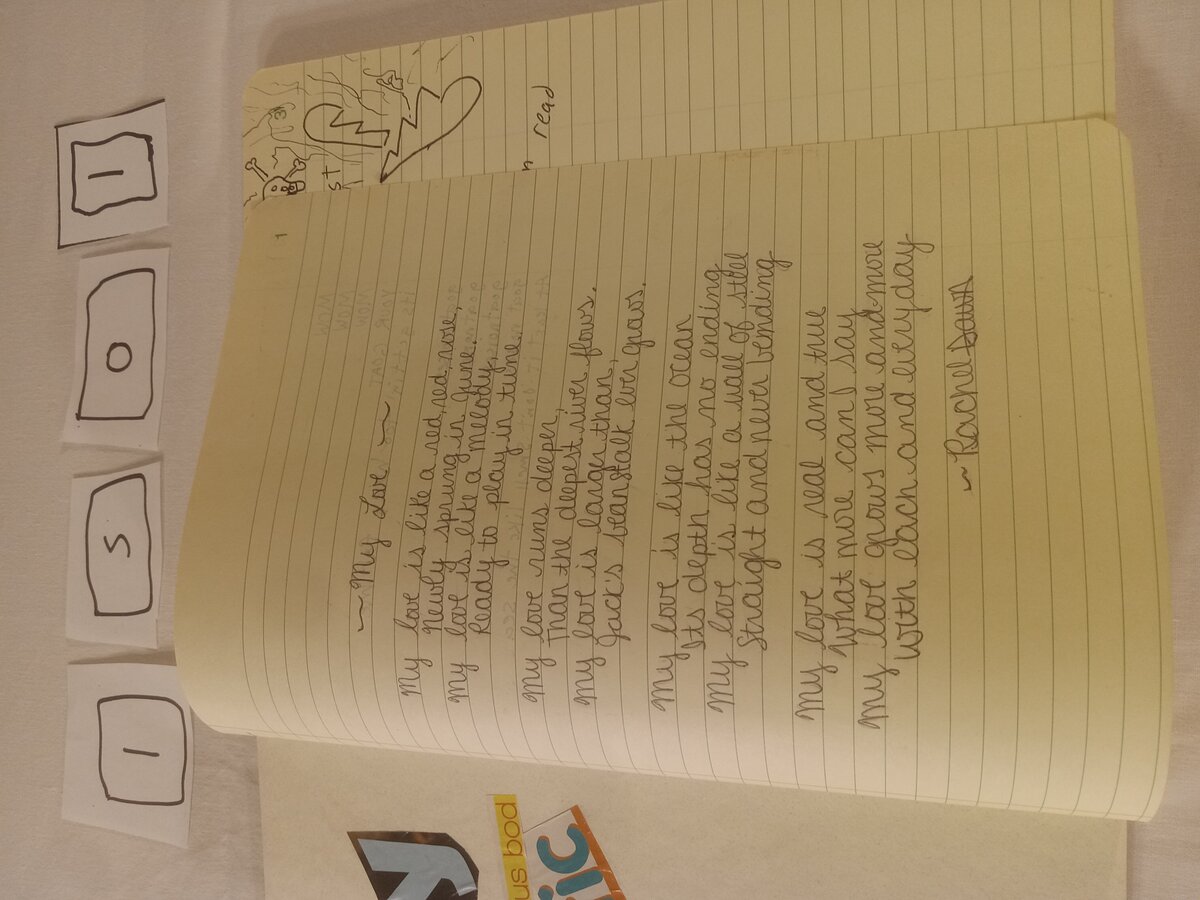 1
5
0
1
1
~ My Love ~
My love is like a red, red rose,
Newly sprung in June.
My love is like a melody,
Ready to play in tune.
My love runs deeper,
Than the deepest river flows.
My love is larger than,
Jack's beanstalk ever grows.
My love is like the ocean
Its depth has no ending
My love is like a wall of steel
Straight and never bending
My love is real and true
What more can I say
My love grows more and more
With each and everyday
~ Rachel Dawn
st
n read
y
us bod
ic